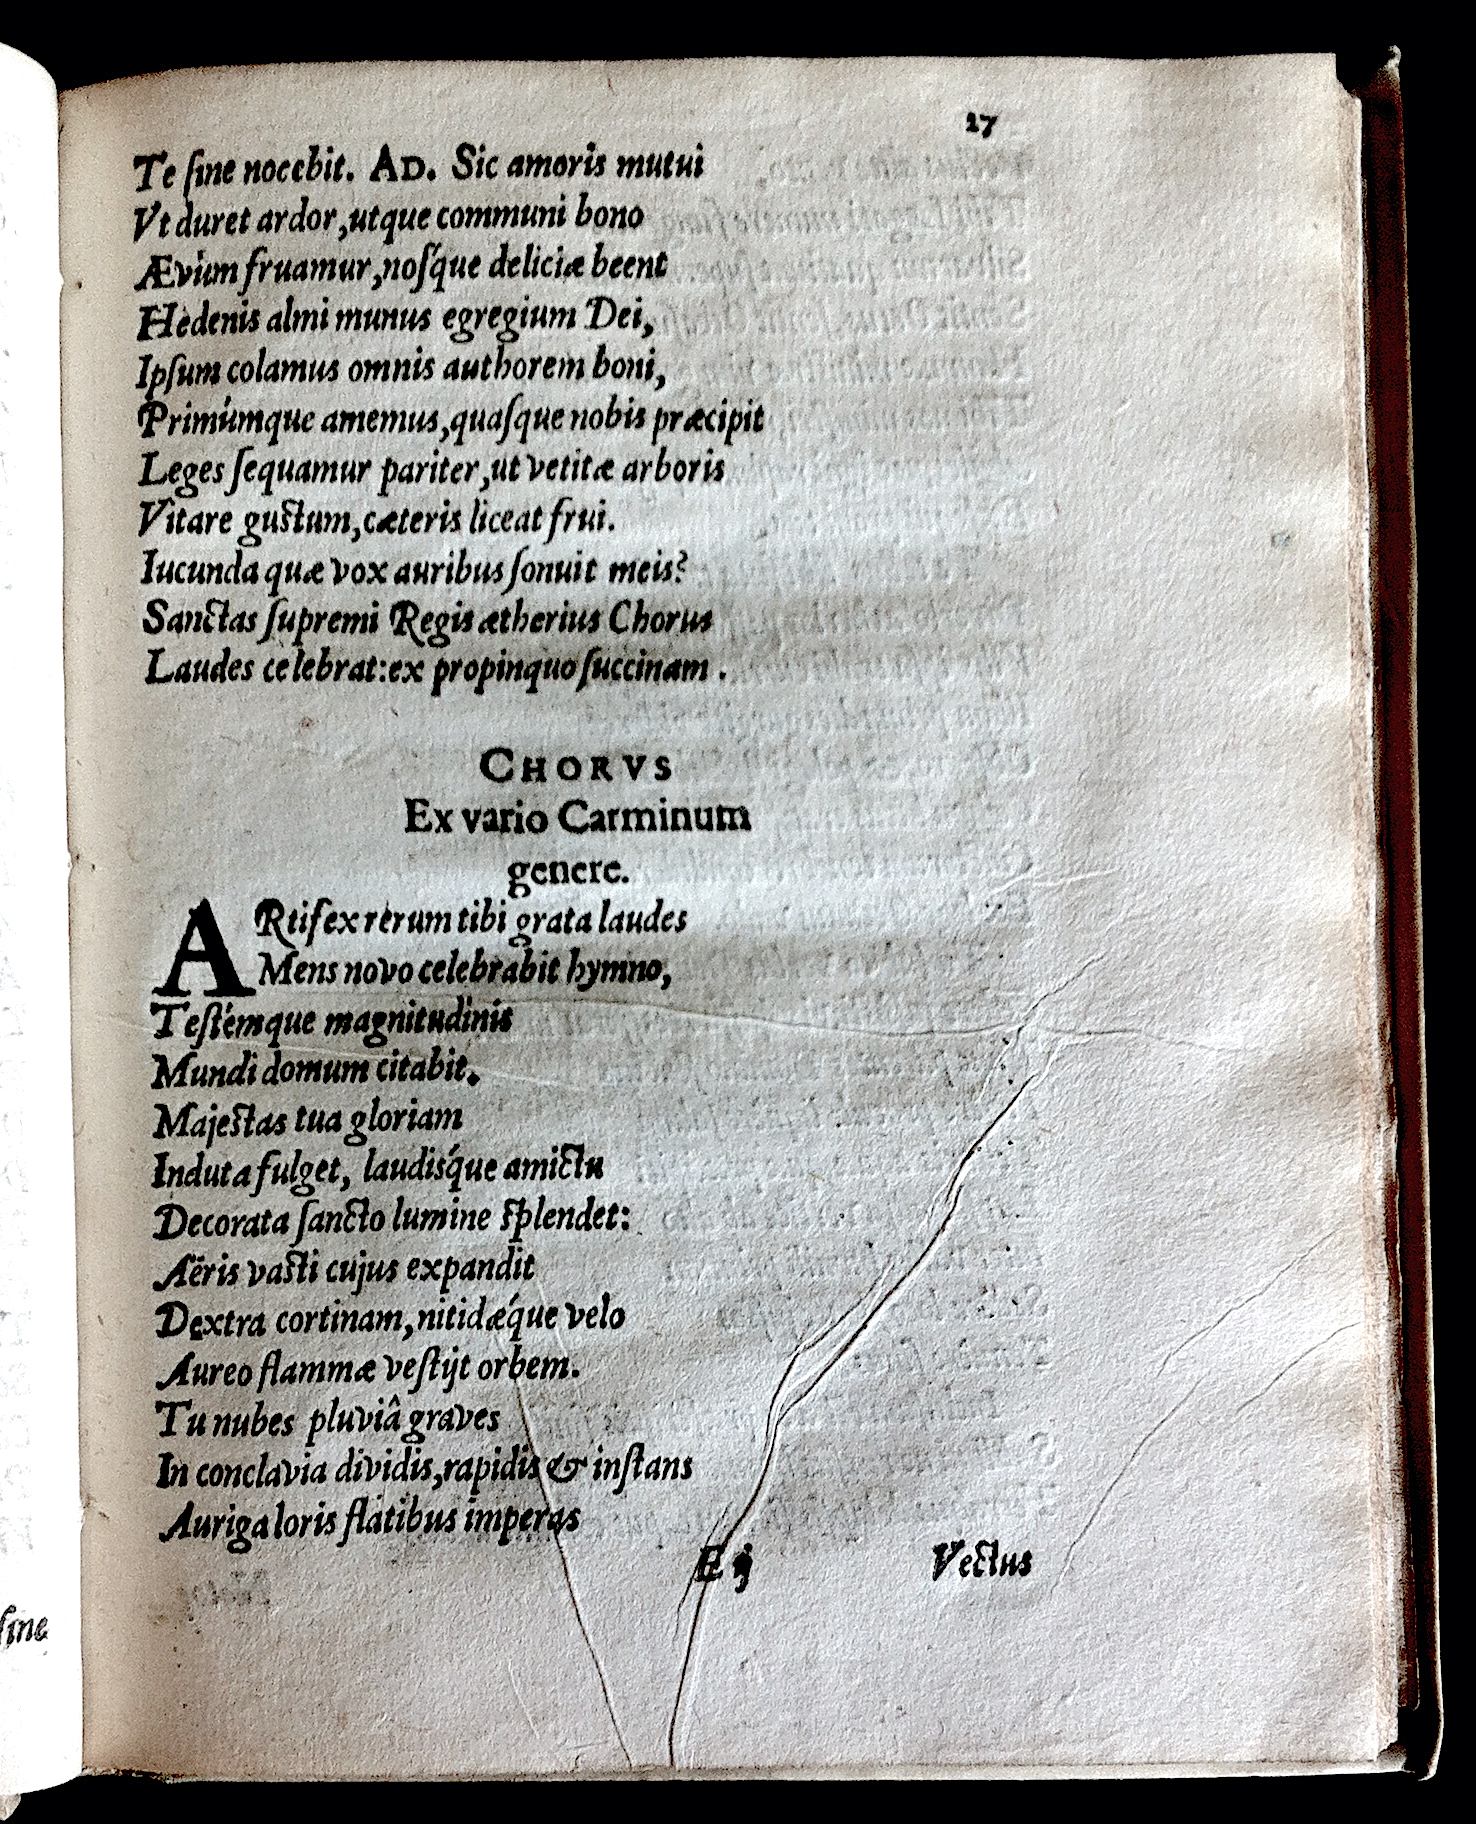 27
Te ſine nocebit. AD. Sic amoris mutui
Vt duret ardor,utque communi bono
Ævum fruamur,noſq́ue deliciæ beent
Hedenis almi munus egregium Dei,
Ipſum colamus omnis authorem boni,
Primúmque amemus,quaſque nobis præcipit
Leges ſequamur pariter,ut vetitæ arboris
Vitare guſtum,cæteris liceat frui.
Iucunda quæ vox auribus ſonuit meis?
Sanctas ſupremi Regis ætherius Chorus
Laudes celebrat:ex propinquo ſuccinam.
CHORVS
Ex vario Carminum
genere.
ARtifex rerum tibi grata laudes
Mens novo celebrabit hymno,
Teſtémque magnitudinis
Mundi domum citabit.
Majeſtas tua gloriam
Induta fulget, laudiſq́ue amictu
Decorata ſancto lumine ſplendet:
Aëris vaſti cujus expandit
Dextra cortinam,nitidæq́ue velo
Aureo flammæ veſtijt orbem.
Tu nubes pluviâ graves
In conclavia dividis,rapidis & inſtans
Auriga loris flatibus imperas
E ij Vectus
ſine